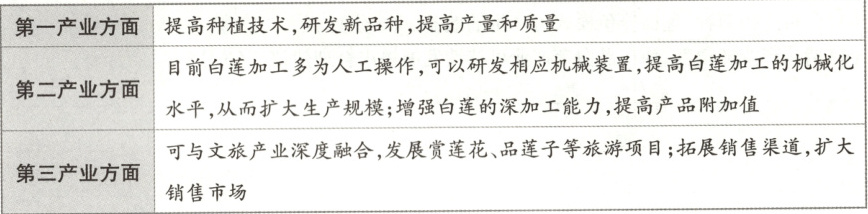 第一产业方面 提高种植技术,研发新品种,提高产量和质量
目前白莲加工多为人工操作,可以研发相应机械装置,提高白莲加工的机械化
第二产业方面
水平,从而扩大生产规模;增强白莲的深加工能力,提高产品附加值
可与文旅产业深度融合,发展赏莲花、品莲子等旅游项目;拓展销售渠道,扩大
第三产业方面
销售市场